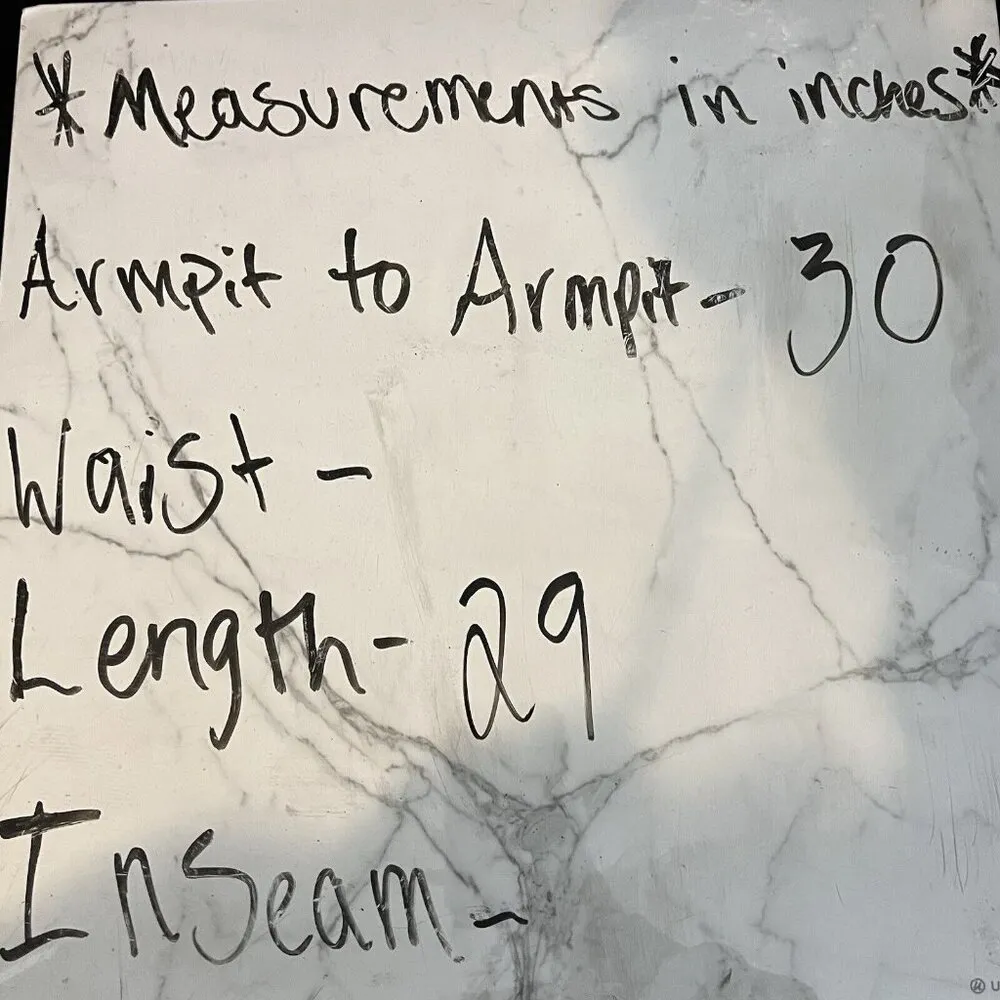 *Measurements in inches*
Armpit to Armpit - 30
Waist -
Length - 29
Inseam -